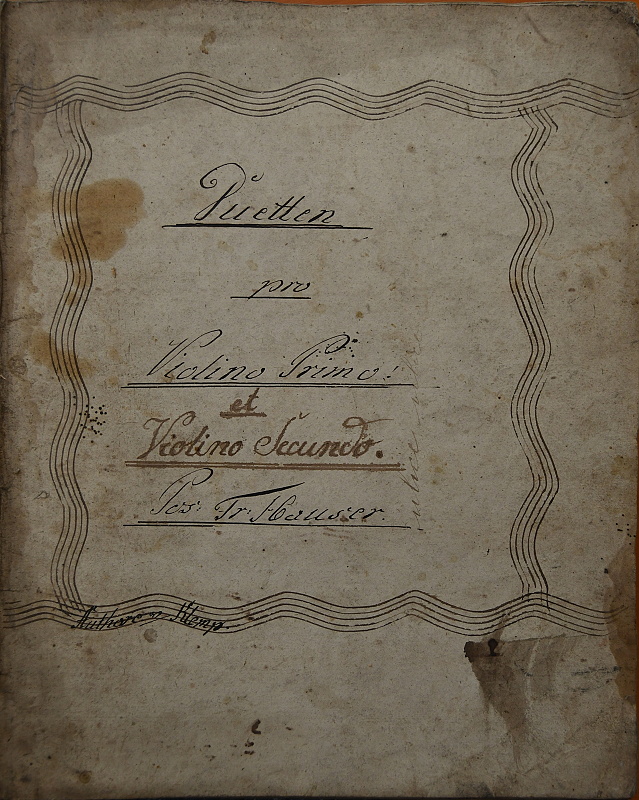 Duetten
pro
Violino Primo:
et
Violino Secundo.
Pos: Fr: Hauser.
Authore v. Kemp.